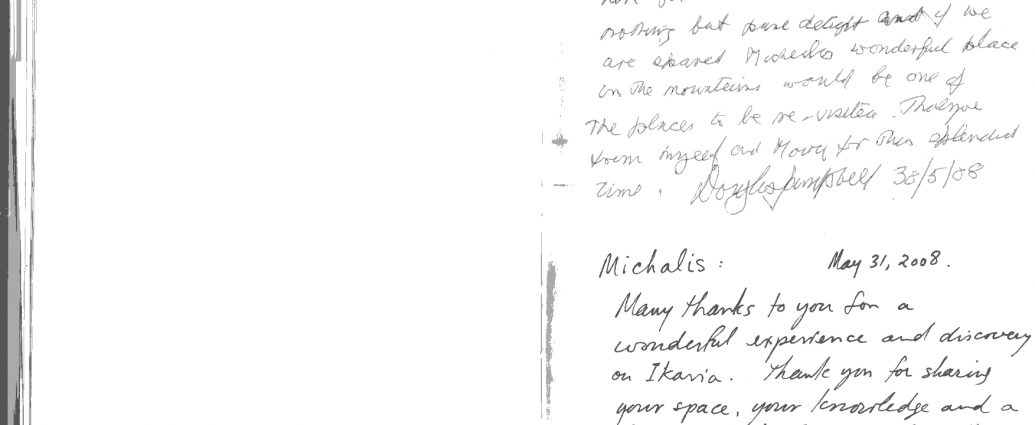 nothing but pure delight and if we
are spared Michalis wonderful place
in the mountains would be one of
The places to be re-visited. Thankyou
from myself and Mary for this splendid
time. Douglas Campbell 30/5/08
Michalis : May 31, 2008.
Many thanks to you for a
wonderful experience and discovery
on Ikaria. Thank you for sharing
your space, your knowledge and a